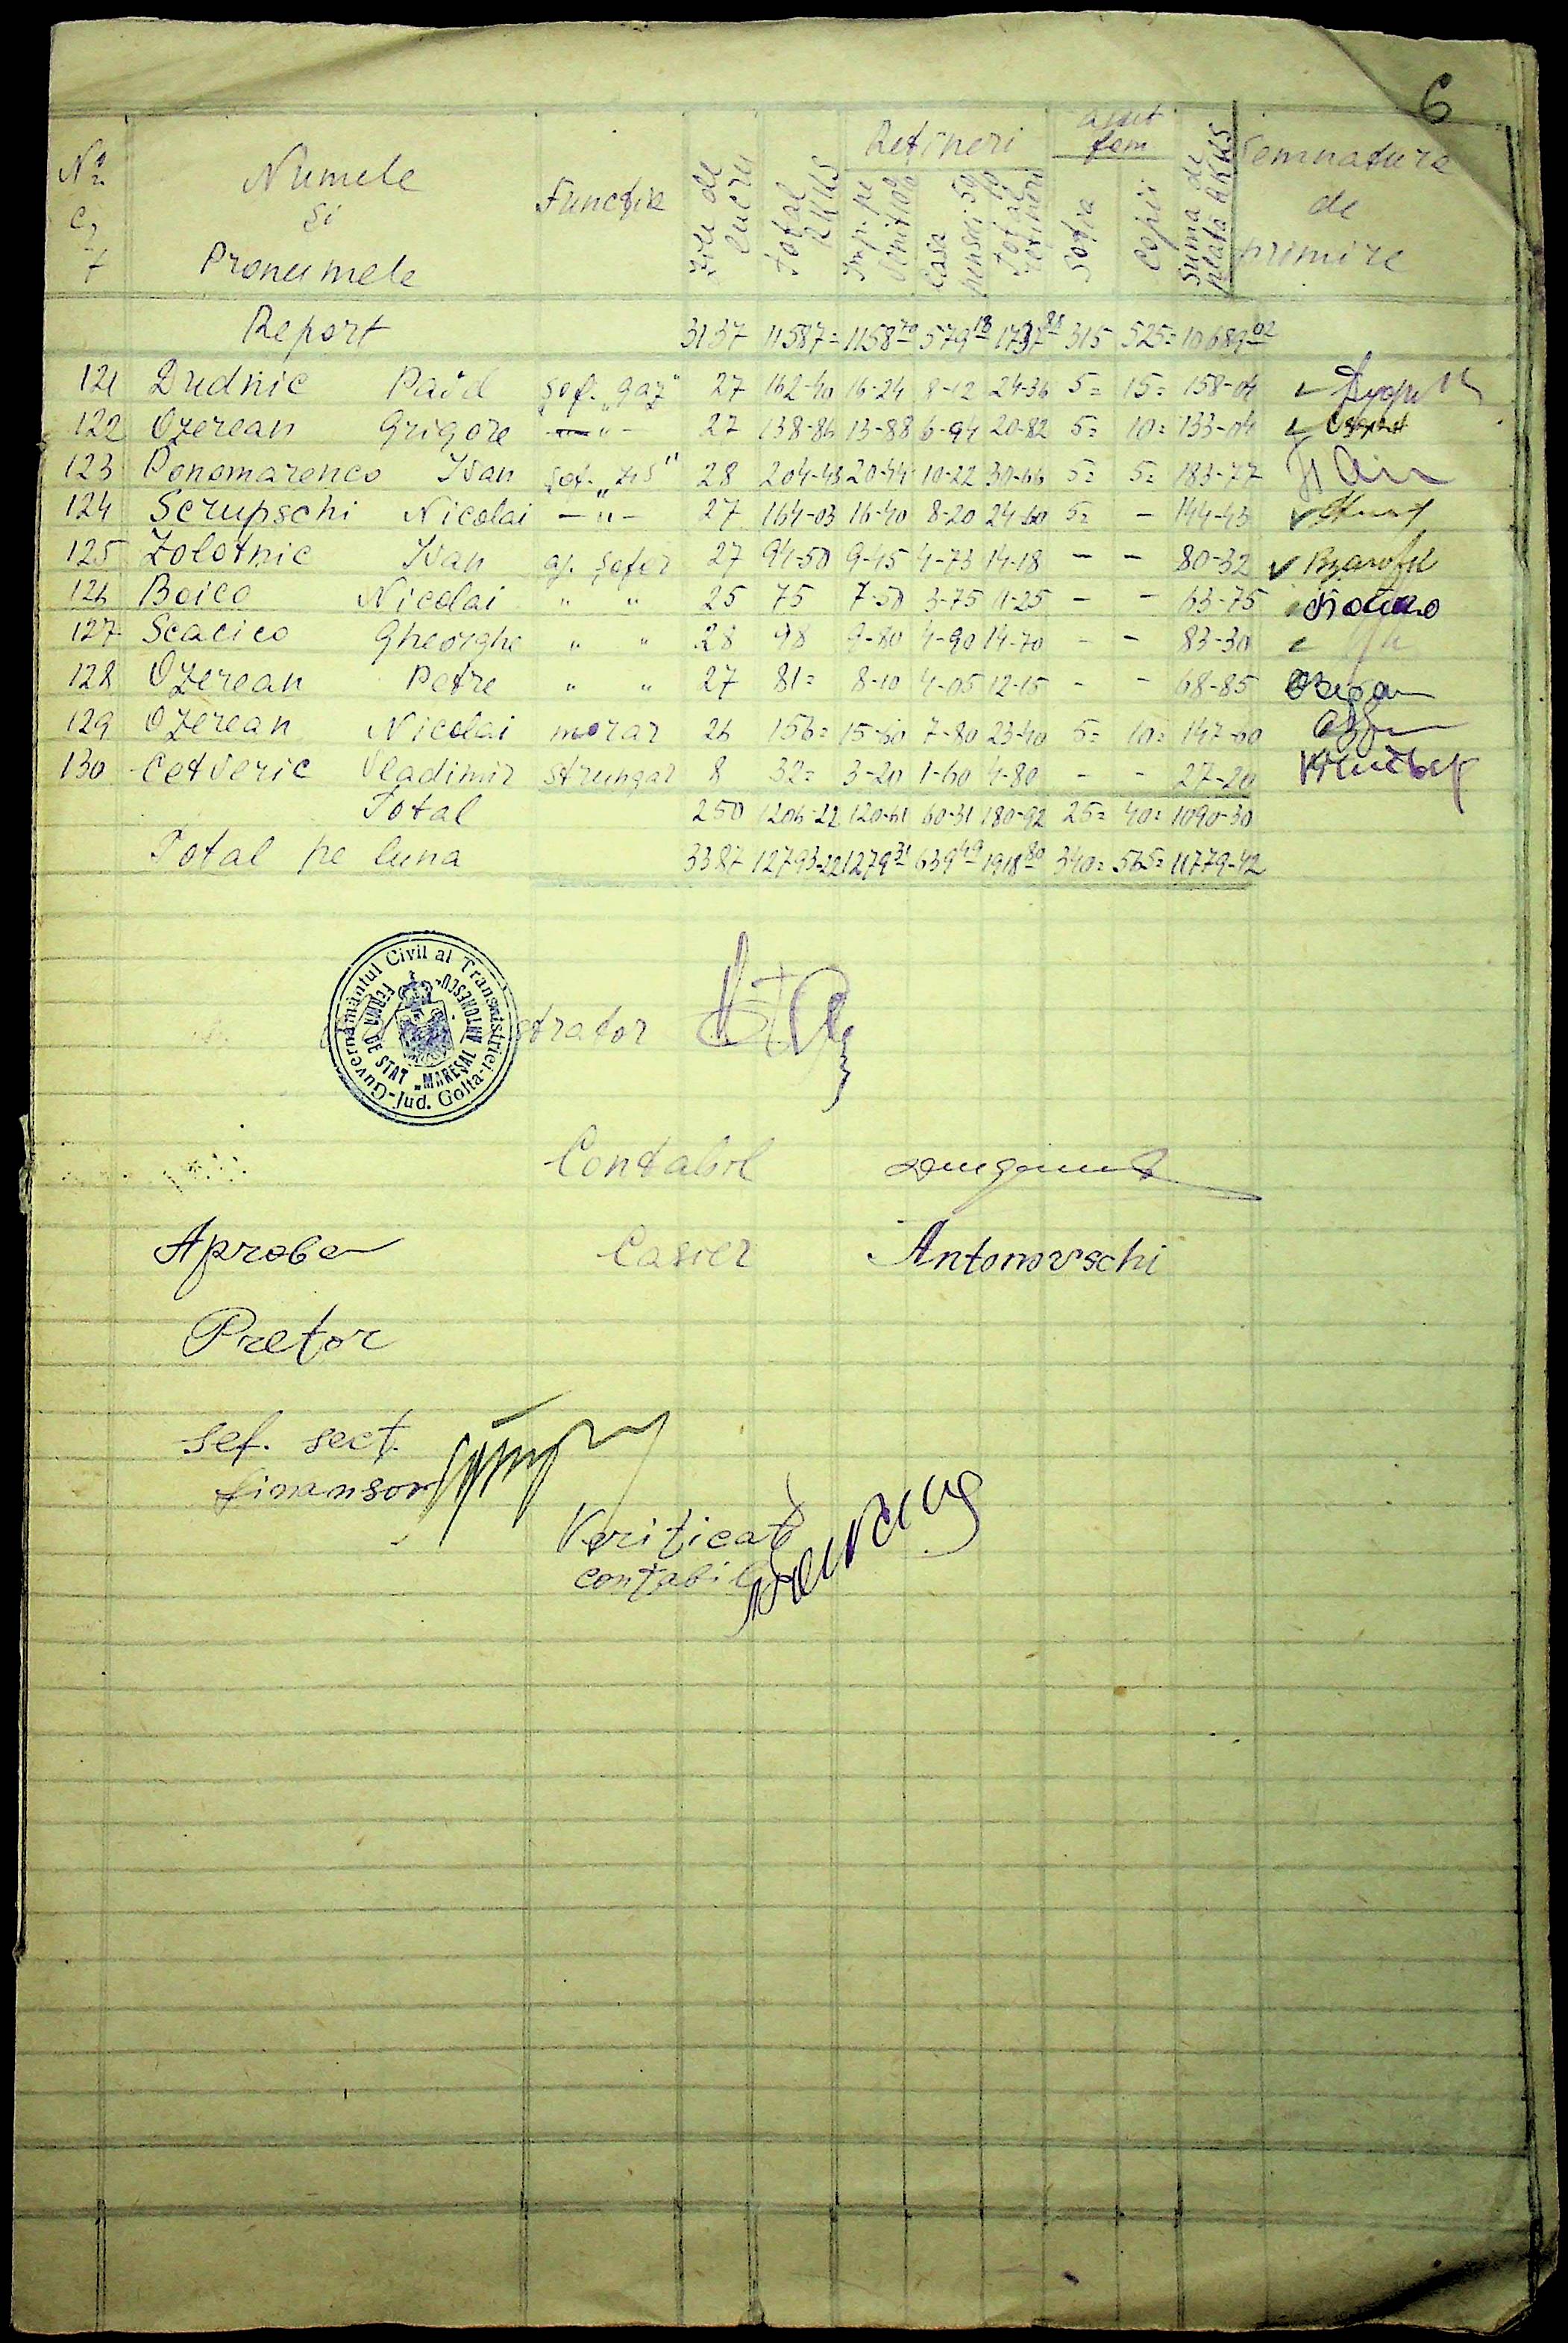 6
Nº c r t | Numele și Pronumele | Funcția | Zile de lucru | Total RKKS | Rețineri | Imp. pe venit | Casa pensiei 5% | Total rețineri | Ajut fam | Soția | Copii | Suma de plata RKKS | Semnatura de primire
Report 3137 11587= 1158 70 579 18 1737 88 315 525= 10689 02
121 Dudnic Pavel șof. "gaz" 27 162-40 16-24 8-12 24-36 5= 15= 158-04
122 Ozerean Grigore -"- 27 138-86 13-88 6-94 20-82 5= 10= 133-04
123 Ponomarenco Ivan șof. "zis" 28 204-43 20-44 10-22 30-66 5= 5= 183-77
124 Scrupschi Nicolai -"- 27 164-03 16-40 8-20 24-60 5= - 144-43
125 Zolotnic Ivan aj. șofer 27 94-50 9-45 4-73 14-18 - - 80-32
126 Boico Nicolai " " 25 75 7-50 3-75 11-25 - - 63-75 Бойко
127 Scacico Gheorghe " " 28 98 9-80 4-90 14-70 - - 83-30
128 Ozerean Petre " " 27 81= 8-10 4-05 12-15 - - 68-85
129 Ozerean Nicolai morar 26 156= 15-60 7-80 23-40 5= 10= 147-60
130 Cetveric Vladimir strungar 8 32= 3-20 1-60 4-80 - - 27-20
Total 250 1206-22 120-61 60-31 180-92 25= 40= 1090-30
Total pe luna 3387 12793-22 1279 31 639 49 1918 80 340= 565= 11779-42
Guvernământul Civil al Transnistriei-Jud. Golta-
FERMA DE STAT „MAREȘAL ANTONESCU"
strator
Contabil
Aprobe Casier Antonovschi
Pretor
Șef. sect.
finansor
Verificat
contabil